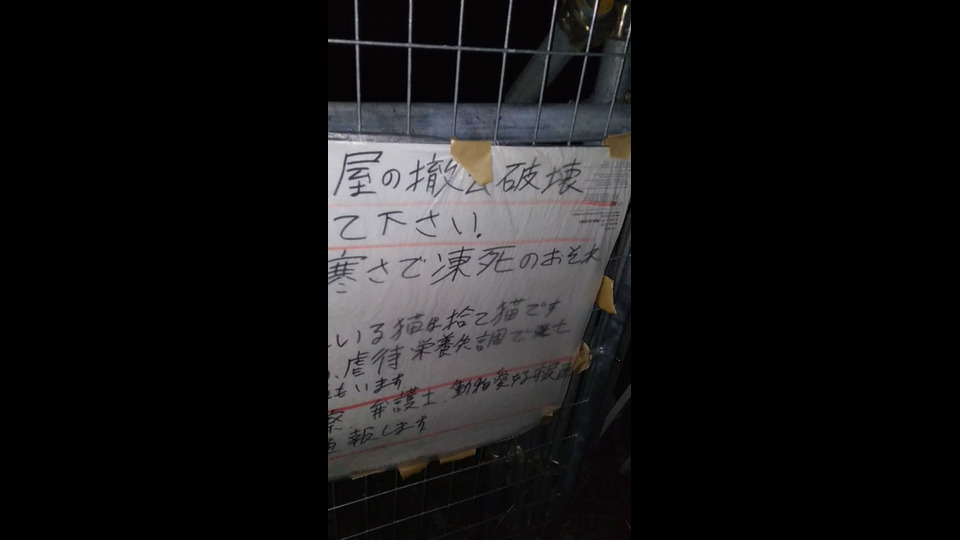 屋の撤去破壊
て下さい!
寒さで凍死のおそれ
いる猫は捨て猫です
虐待 栄養失調で死亡
もいます
察 弁護士 動物愛する市民
報します